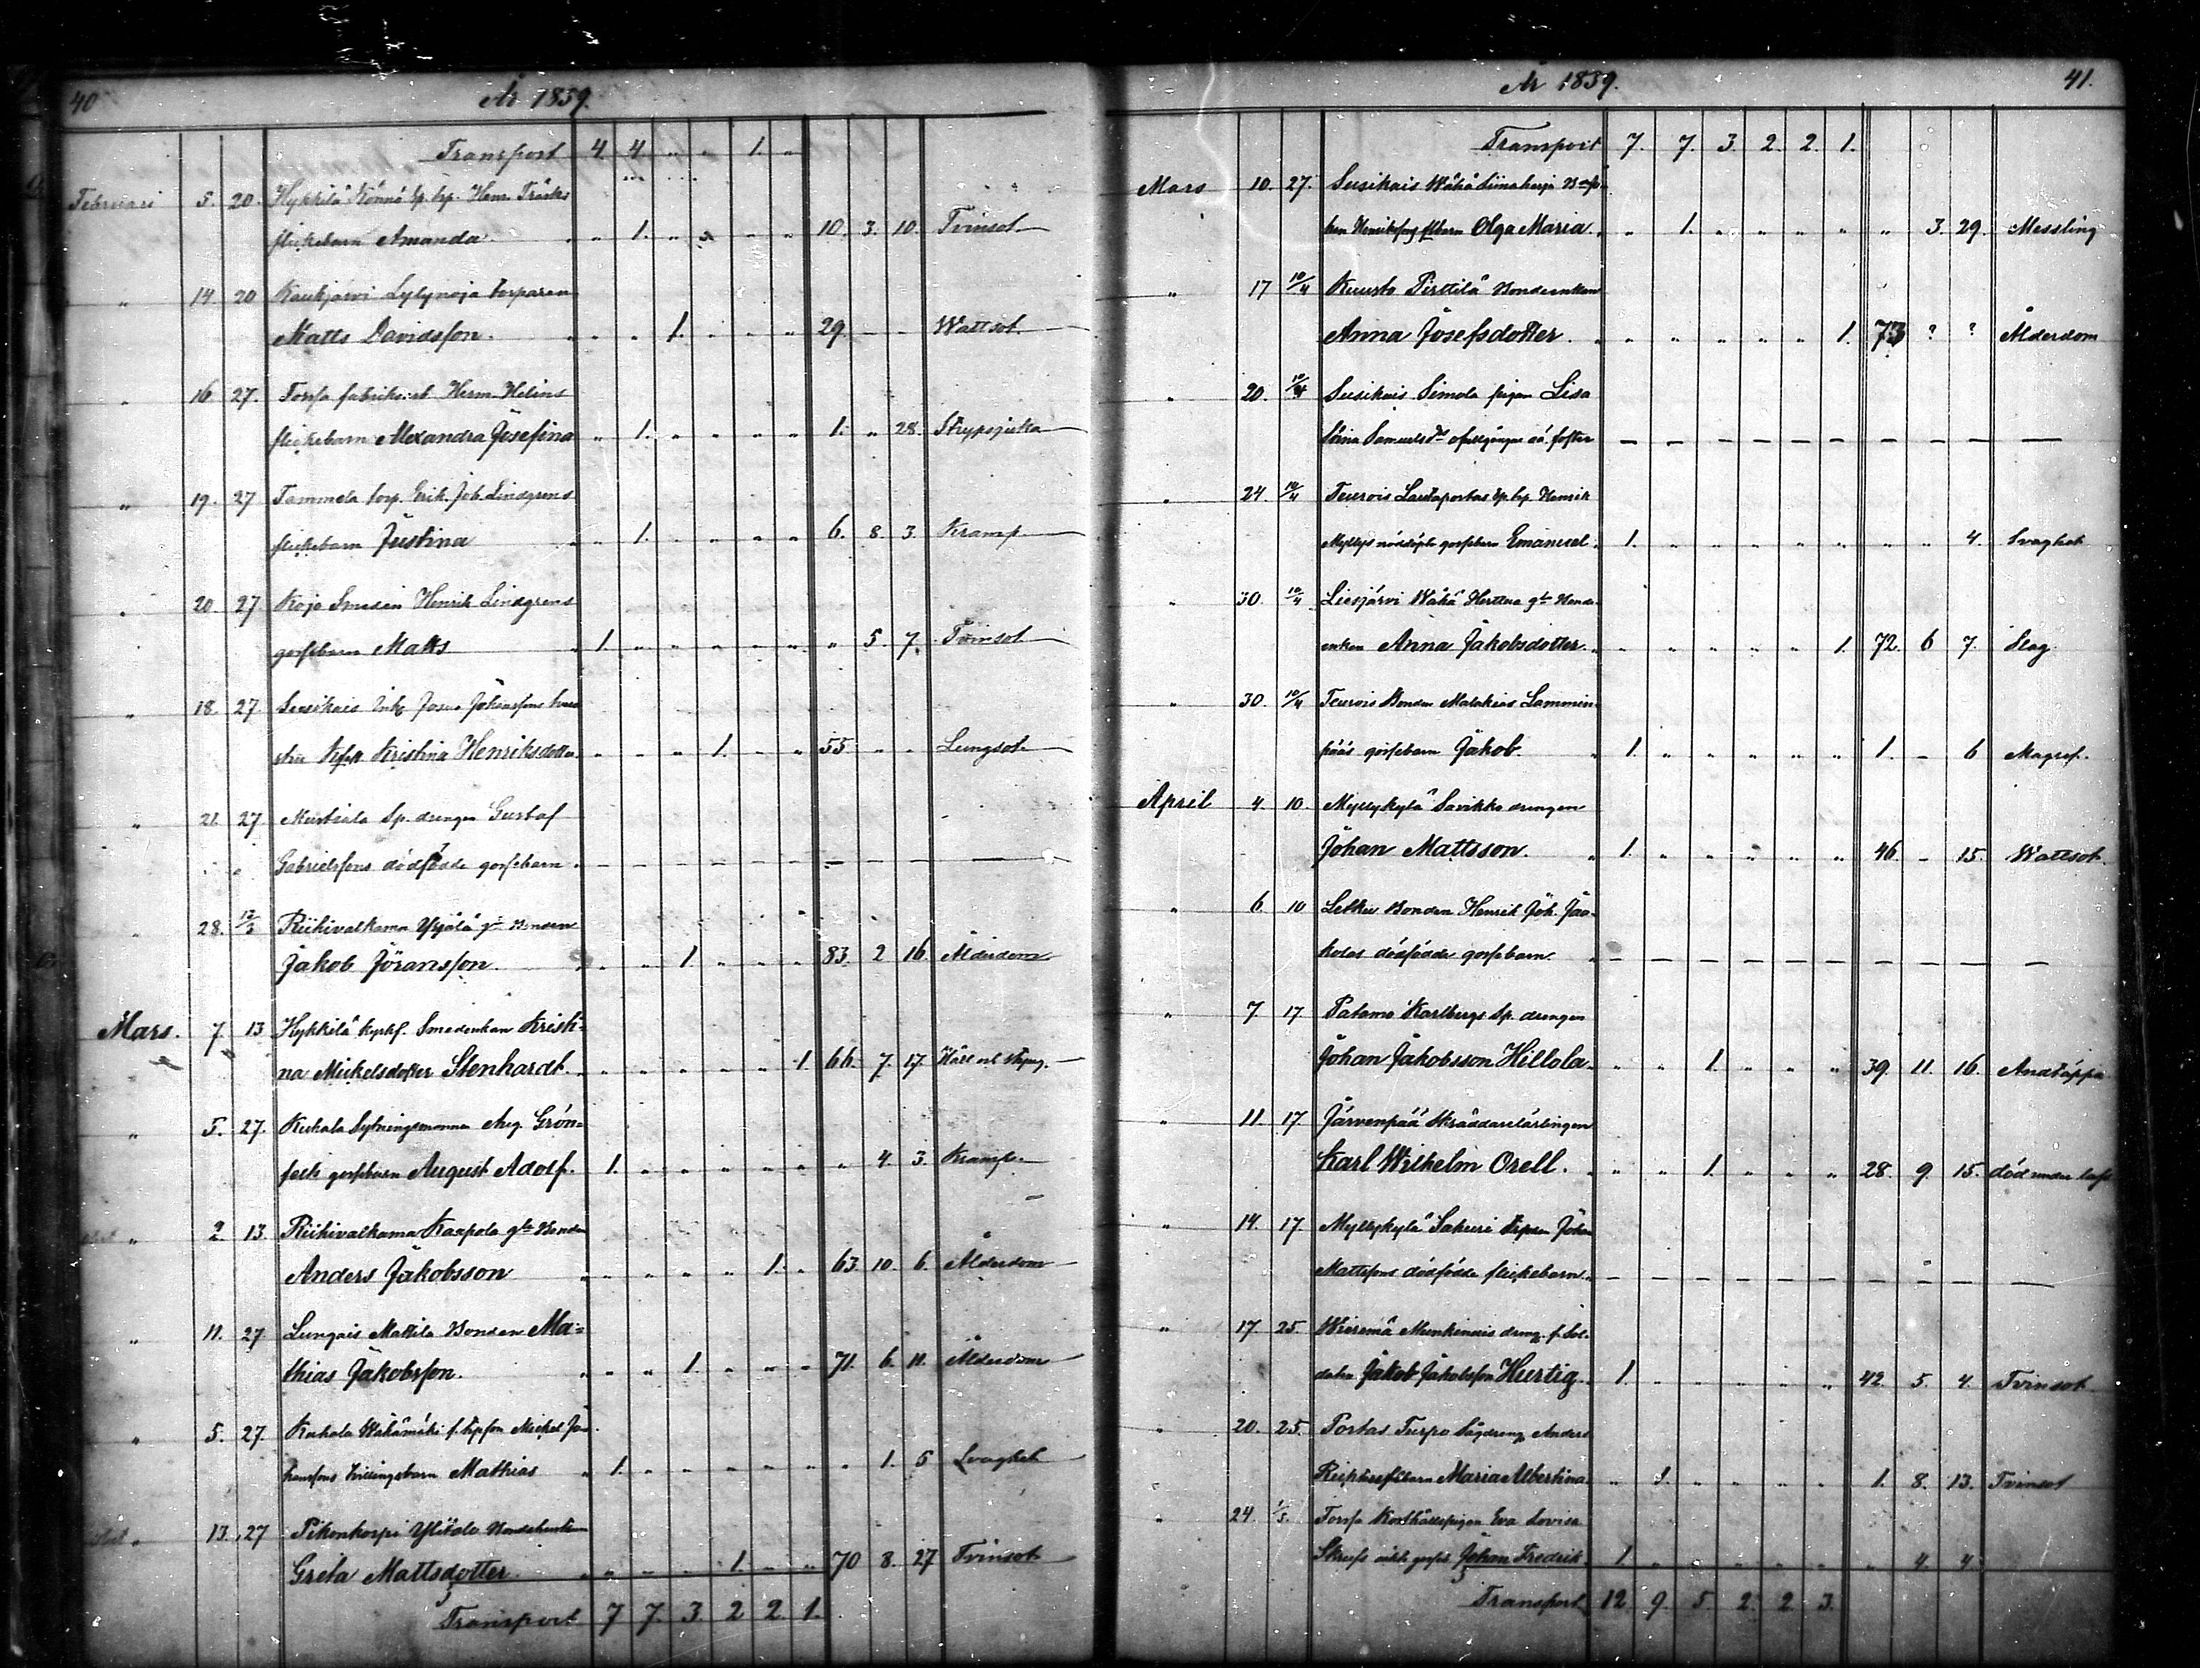 40
År 1859.
Transport 4. 4. " " 1. "
Februari 5. 20. Hykkilä Hem. Träsks
flickebarn Amanda. " 1. " " " " 10. 3. 10. Tvinsot
" 14 20 Kaukjärvi Lylynoja torparen
Matts Davidsson. " " 1. " " " 29. - - Wattsot
" 16 27. Forssa Herm. Helins
flickebarn Alexandra Josefina " 1. " " " " 1. " 28. Strypsjuka
" 19. 27 Tammela torp. Erik Joh. Lindgrens
flickebarn Justina " 1. " " " " 6. 8. 3. Kramp
" 20. 27. Kojo Smeden Henrik Lindgrens
gossebarn Matts 1. " " " " " " 5 7. Tvinsot
" 18. 27. Susikais Johanssons
Kristina Henriksdotter " " " 1. " " 55 " " Lungsot
" 21. 27 Mustiala Sp. drengen Gustaf
Gabrielssons dödfödde gossebarn. - - - - - - - - -
" 28. 13/3 Riihivalkama Yrjälä gle Bonden
Jakob Göransson. " " 1 " " " 83. 2 16. Ålderdom.
Mars. 7. 13 Hykkilä Smedenkan Kristi=
na Mickelsdotter Stenhardt. " " " " " 1. 66. 7. 17. Håll och styng.
" 5. 27. Kukala Sytningsmannen Aug. Grön=
gossebarn August Adolf. 1. " " " " " " 4. 3. Kramp.
" 2 13. Riihivalkama Kaapola gle Bonden
Anders Jakobsson " " " " 1. " 63. 10. 6. Ålderdom
" 11. 27. Lungois Mattila Bonden Ma=
thias Jakobsson. " " 1. " " " 71. 6. 11. Ålderdom
" 5. 27. Kukala Wähämäki Mickel Jo=
hanssons tvillingebarn Mathias 1. " " " " " " 1. 5 Svaghet
" 13. 27 Pikonkorpi Ylitalo
Greta Mattsdotter " " " 1. " " 70 8. 27 Tvinsot
Transport 7 7. 3. 2 2. 1.
År 1859.
41.
Transport 7. 7. 3. 2. 2. 1.
Mars 10. 27. Susikais Wähä Siimaherja
Henrikssons flbarn Olga Maria. " 1. " " " " " 3. 29. Messling
" 17 10/4 Kuusto Pirttilä Bondenkan
Anna Josefsdotter. " " " " " 1. 73 ? ? Ålderdom
" 20. 10/4 Susikais Simola pigan Lisa
Stina Samuelsdr ofullgångne oä. foster - - - - - - - - - -
" 24. 10/4 Teurois Lautaportas Henrik
Myllys nöddöpte gossebarn Emanuel. 1. " " " " " " " 4. Svaghet
" 30. 10/4 Liesjärvi Wähä Herttua gla Bonde=
enkan Anna Jakobsdotter. " " " " " 1. 72. 6 7. Slag
" 30. 10/4 Teurois Bonden Malakias Lammin=
pääs gossebarn Jakob. 1. " " " " " 1. - 6 Magref.
April 4 10. Myllykylä Savikko drengen
Johan Mattsson. 1. " " " " " 46 - 15. Wattsot.
" 6. 10 Letku Bonden Henrik Joh. Jaa=
kolas dödfödde gossebarn. - - - - - - - - - -
" 7 17 Patamo Karlbergs Sp. drengen
Johan Jakobsson Hillola. " " 1. " " " 39. 11. 16. Andtäppa
" 11. 17. Järvenpää Skräddarelärlingen
Karl Wilhelm Orell. " " 1. " " " 28. 9. 15. död under
" 14. 17. Myllykylä Sakuri Johan
Mattssons dödfödda flickebarn. - - - - - - - - - -
" 17 25. Wieremä Munkinais dreng. f. Sol=
daten Jakob Jakobsson Hurtig. 1. " " " " " 42. 5. 4. Tvinsot
" 20. 25. Portas Turpo Sågdreng. Anders
Maria Albertina. " 1. " " " " 1. 8. 13. Tvinsot
" 24. 1/5 Forssa Eva Lovisa
Johan Fredrik. 1. " " " " " " 4. 4.
Transport 12. 9. 5. 2. 2. 3.